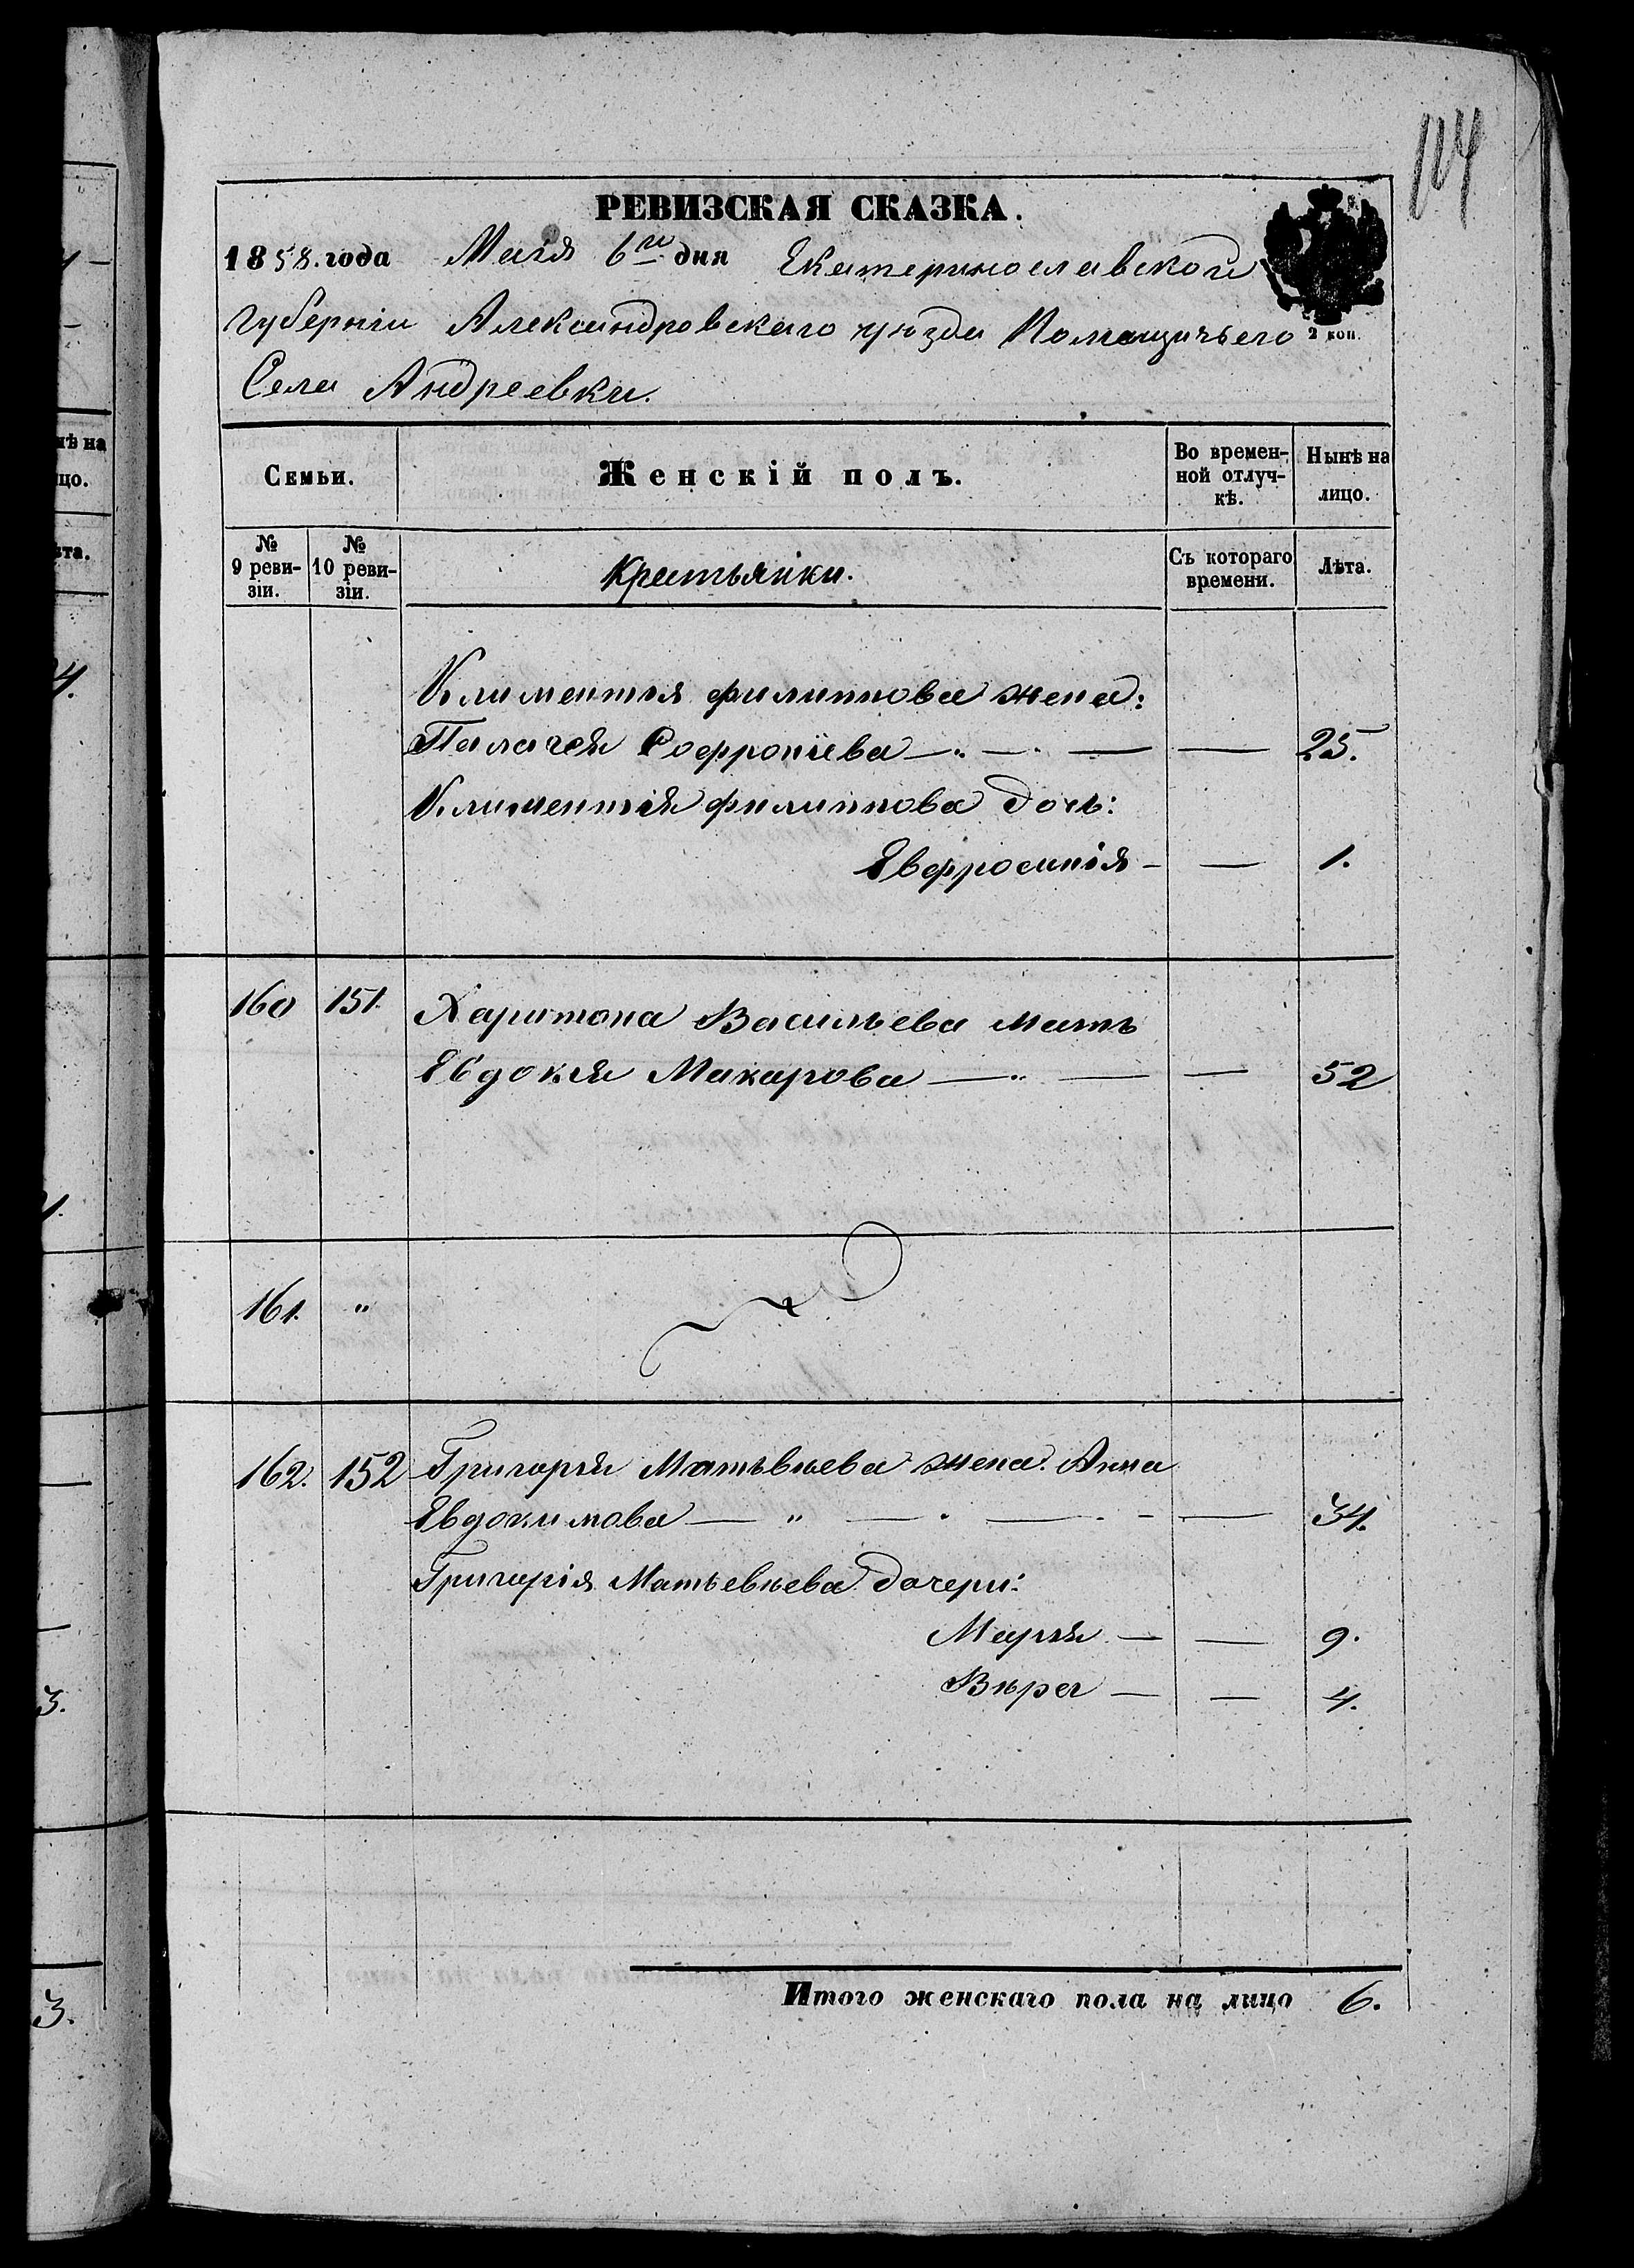 104
РЕВИЗСКАЯ СКАЗКА.
1858. года Мая 6го дня Екатеринославской
Губерніи Александровскаго уѣзда Помѣщичьего
2 коп.
Села Андреевки.
Семьи.
Женскій полъ.
Во времен-
ной отлуч-
кѣ.
Нынѣ на
лицо.
№
9 реви-
зіи.
№
10 реви-
зіи.
Крестьянки.
Съ котораго
времени.
Лѣта.
Климентія Филиппова жена:
Пелагея Софроніева — „ — — — 25.
Климентія Филиппова дочь:
Евфросинія — — 1.
160 151. Харитона Васильева мать
Евдокія Макарова — „ — — 52
161. „
162. 152 Григорія Матвѣева жена Анна
Евдокимова — „ — — — 34.
Григорія Матвѣева дочери:
Марія — — 9.
Вѣра — — 4.
Итого женскаго пола на лицо 6.